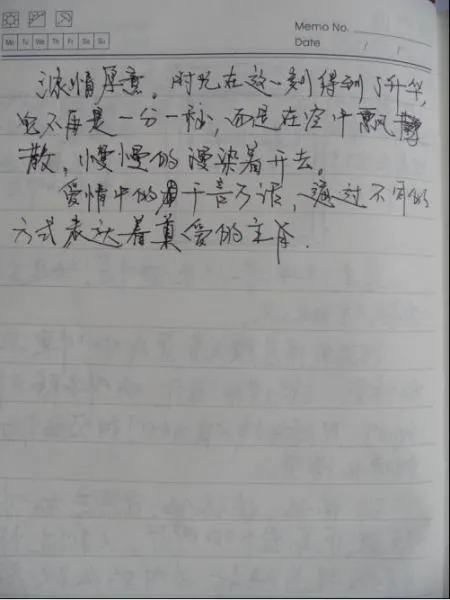 Memo No.
Mo Tu We Th Fr Sa Su
Date / /
浓情厚意。时光在这一刻得到了升华,
它不再是一分一秒,而是在空中飘
散,慢慢的漫染着开去。
爱情中的千言万语,通过不同的
方式表达着真爱的主旨.